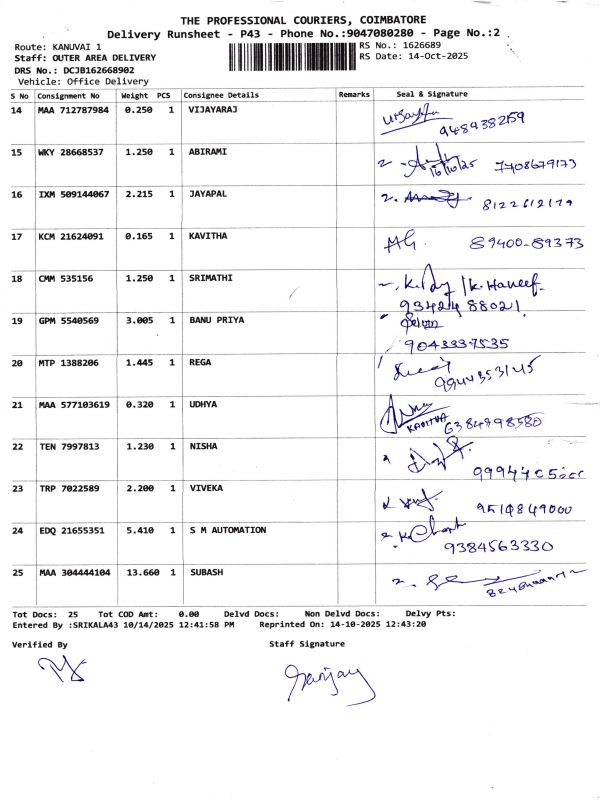 THE PROFESSIONAL COURIERS, COIMBATORE
Delivery Runsheet - P43 - Phone No.:9047080280 - Page No.:2
Route: KANUVAI 1 RS No.: 1626689
Staff: OUTER AREA DELIVERY RS Date: 14-Oct-2025
DRS No.: DCJB162668902
Vehicle: Office Delivery
S No Consignment No Weight PCS Consignee Details Remarks Seal & Signature
14 MAA 712787984 0.250 1 VIJAYARAJ
9489382159
15 WKY 28668537 1.250 1 ABIRAMI
16/10/25 7708679173
16 IXM 509144067 2.215 1 JAYAPAL
8122612179
17 KCM 21624091 0.165 1 KAVITHA
89400-89373
18 CMM 535156 1.250 1 SRIMATHI
K. Haneef
93424 88021
19 GPM 5540569 3.005 1 BANU PRIYA
9043337535
20 MTP 1388206 1.445 1 REGA
9944353145
21 MAA 577103619 0.320 1 UDHYA
KAVITHA 6384798580
22 TEN 7997813 1.230 1 NISHA
23 TRP 7022589 2.200 1 VIVEKA
24 EDQ 21655351 5.410 1 S M AUTOMATION
9384563330
25 MAA 304444104 13.660 1 SUBASH
Tot Docs: 25 Tot COD Amt: 0.00 Delvd Docs: Non Delvd Docs: Delvy Pts:
Entered By :SRIKALA43 10/14/2025 12:41:58 PM Reprinted On: 14-10-2025 12:43:20
Verified By Staff Signature
Sanjay